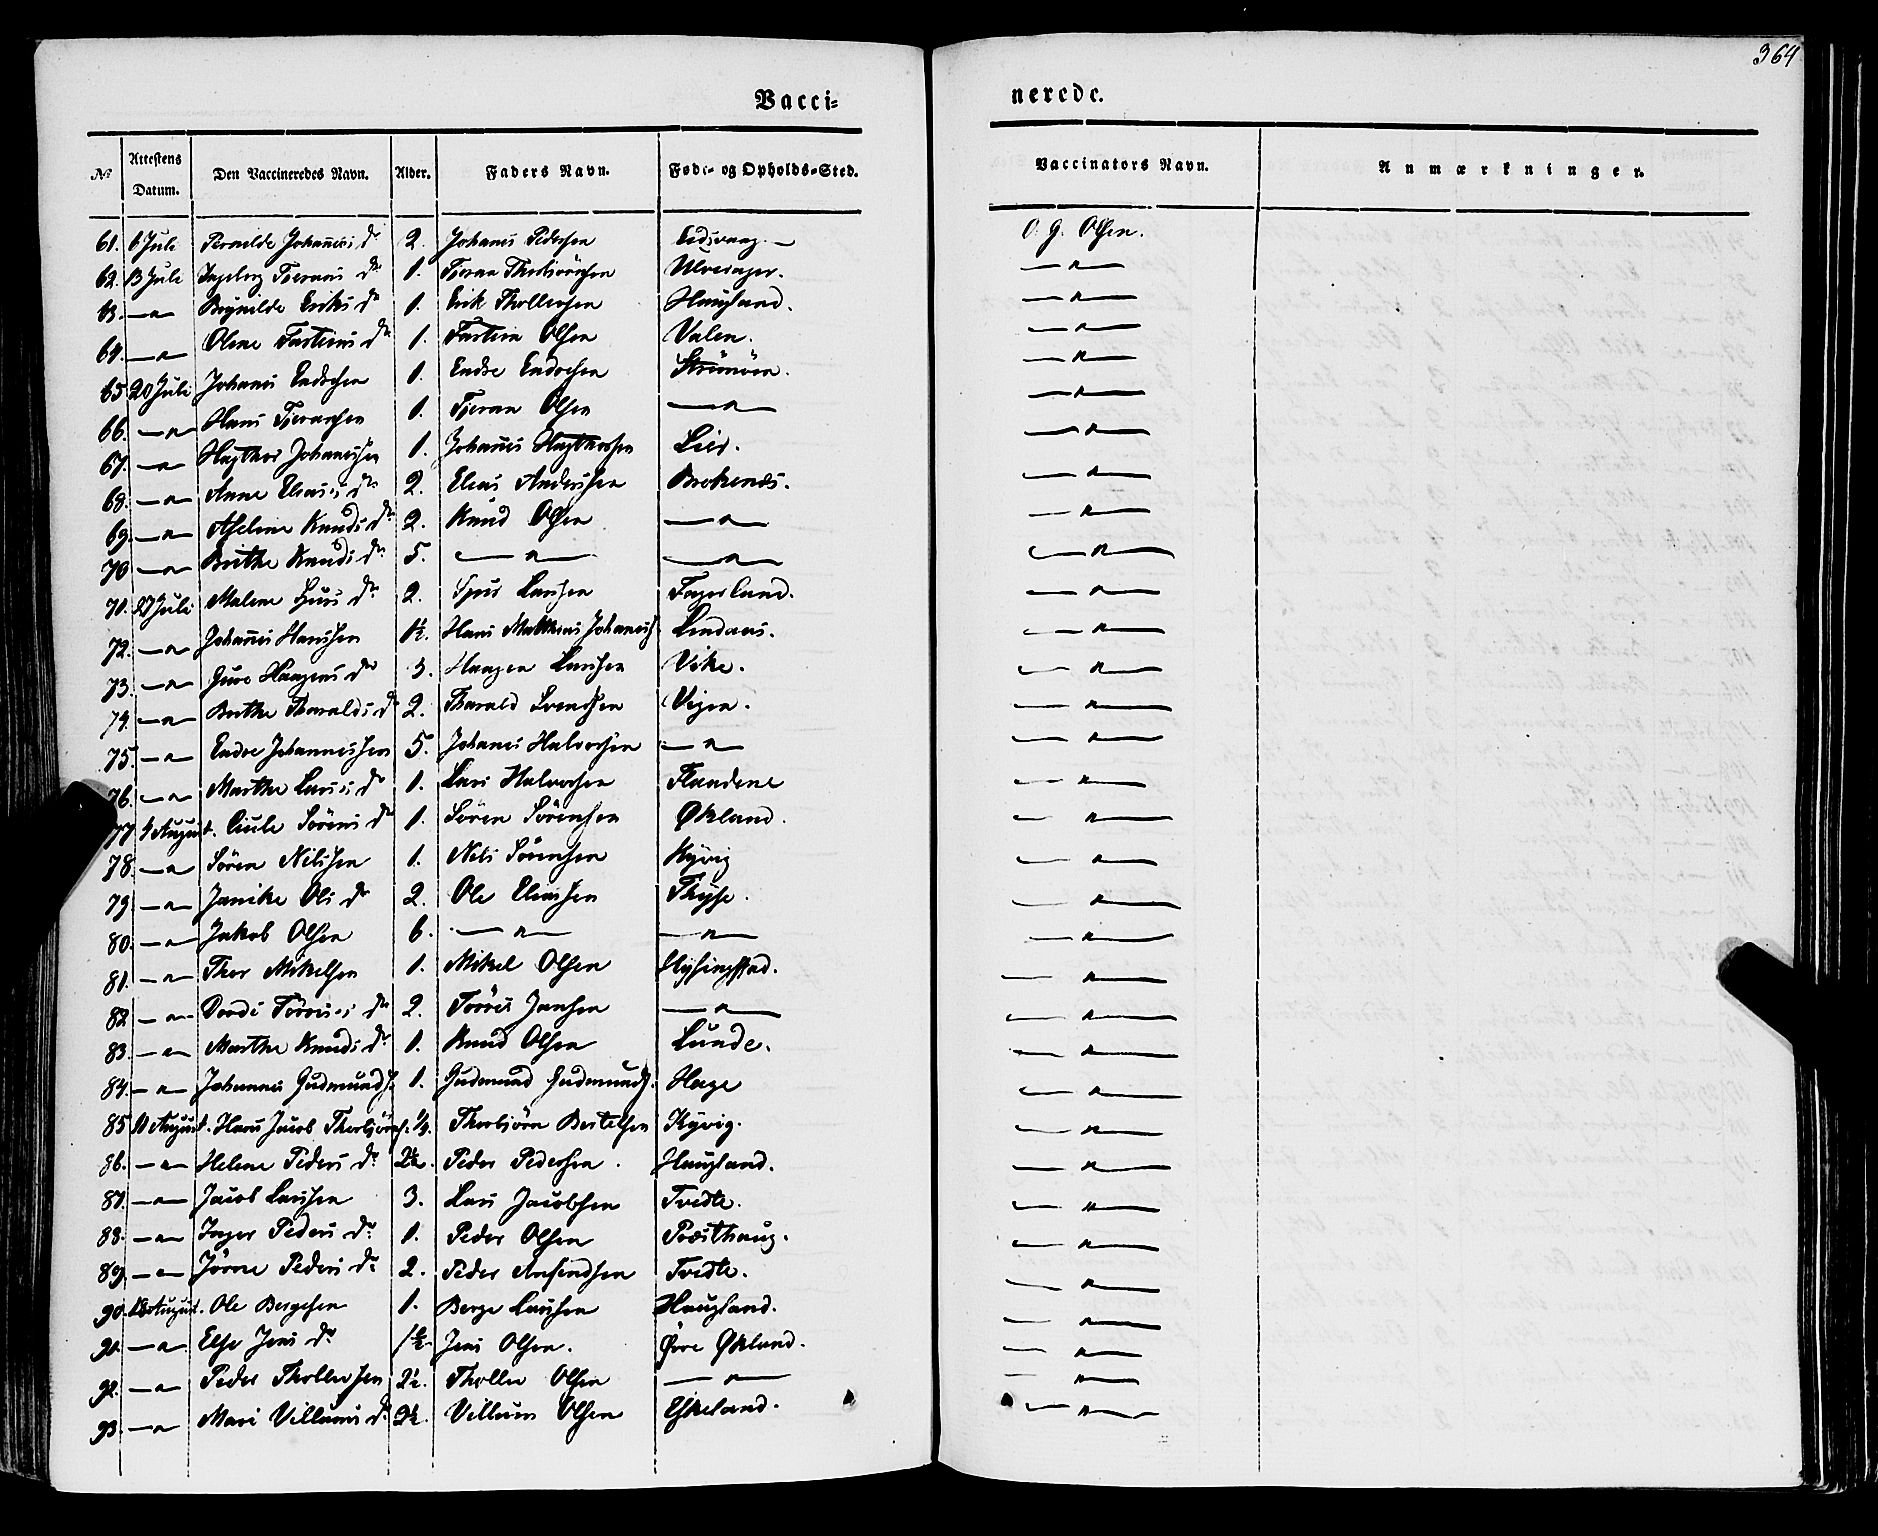 364
Vacci=
nerede.
No Attestens Datum. Den Vaccineredes Navn. Alder. Faders Navn. Føde- og Opholds-Sted. Vaccinators Navn. Anmærkninger.
61. 6 Juli Pernilde Johannis Dr 2. Johanis Pedersen Eidsvaag. — O. G. Olsen.
62. 13 Juli Ingeborg Tjerans Dr 1. Tjeran Thorbjörnsen Ulveager. —"—
63. —"— Brynilde Eriks Dr 1. Erik Thollevsen Haugland. —"—
64. —"— Oline Tarteins Dr 1. Tartein Olsen Valen. —"—
65 20 Juli Johanis Endresen 1. Endre Endresen Strömöen. —"—
66. —"— Hans Tjeransen 1. Tjeran Olsen —"— —"—
67. —"— Hagthor Johanisen 1. Johanis Hagthorsen Lier. —"—
68. —"— Anne Eliasis Dr 2. Elias Andersen Brekenes. —"—
69. —"— Aselene Knuds Dr 2. Knud Olsen —"— —"—
70 —"— Brithe Knuds Dr 5. —"— —"— —"—
71. 27 Juli Malene Sjurs Dr 2. Sjur Larsen Fagerland. —"—
72. —"— Johanis Hansen 1½. Hans Mathias Johanis Lindaas. —"—
73. —"— Guro Haagens Dr 3. Haagen Larsen Vike. —"—
74. —"— Brithe Tharalds Dr 2. Tharald Svendsen Vigen. —"—
75. —"— Endre Johannessen 5. Johanis Halvorsen —"— —"—
76. —"— Marthe Larsis Dr 1. Lars Halvorsen Flaadene —"—
77 4 August. Cicile Sörens Dr 1. Sören Sörensen Økland. —"—
78. —"— Sören Nilssen 1. Nils Sörensen Kyvig —"—
79. —"— Janike Ols Dr 2. Ole Eliassen Thyse. —"—
80. —"— Jakob Olsen 6. —"— —"— —"—
81. —"— Thor Mikelsen 1. Mikel Olsen Hysingstad. —"—
82 —"— Dorde Torresis Dr 2. Torres Jansen —"— —"—
83. —"— Marthe Knuds Dr 1. Knud Olsen Lunde. —"—
84. —"— Johannes Gudmunds. 1. Gudmund Gudmunds. Hage —"—
85 11 August. Hans Jacob Thorbjörns. ¼. Thorbjörn Bertelsen Kyvig. —"—
86. —"— Helene Peders Dr 2½. Peder Pedersen. Haugland. —"—
87. —"— Jacob Larsen 3. Lars Jacobsen Tvedte. —"—
88. —"— Inger Peders Dr 1. Peder Olsen Præsthaug. —"—
89. —"— Jörne Peders Dr 2. Peder Amundsen Tvedte. —"—
90. 18 August. Ole Bergesen 1. Berge Larsen Haugland. —"—
91. —"— Else Jens Dr 1½. Jens Olsen. Övre Økland. —"—
92. —"— Peder Thollevsen 2½. Thollev Olsen —"— —"—
93. —"— Mari Villums Dr 2½. Villum Olsen Eskeland. —"—